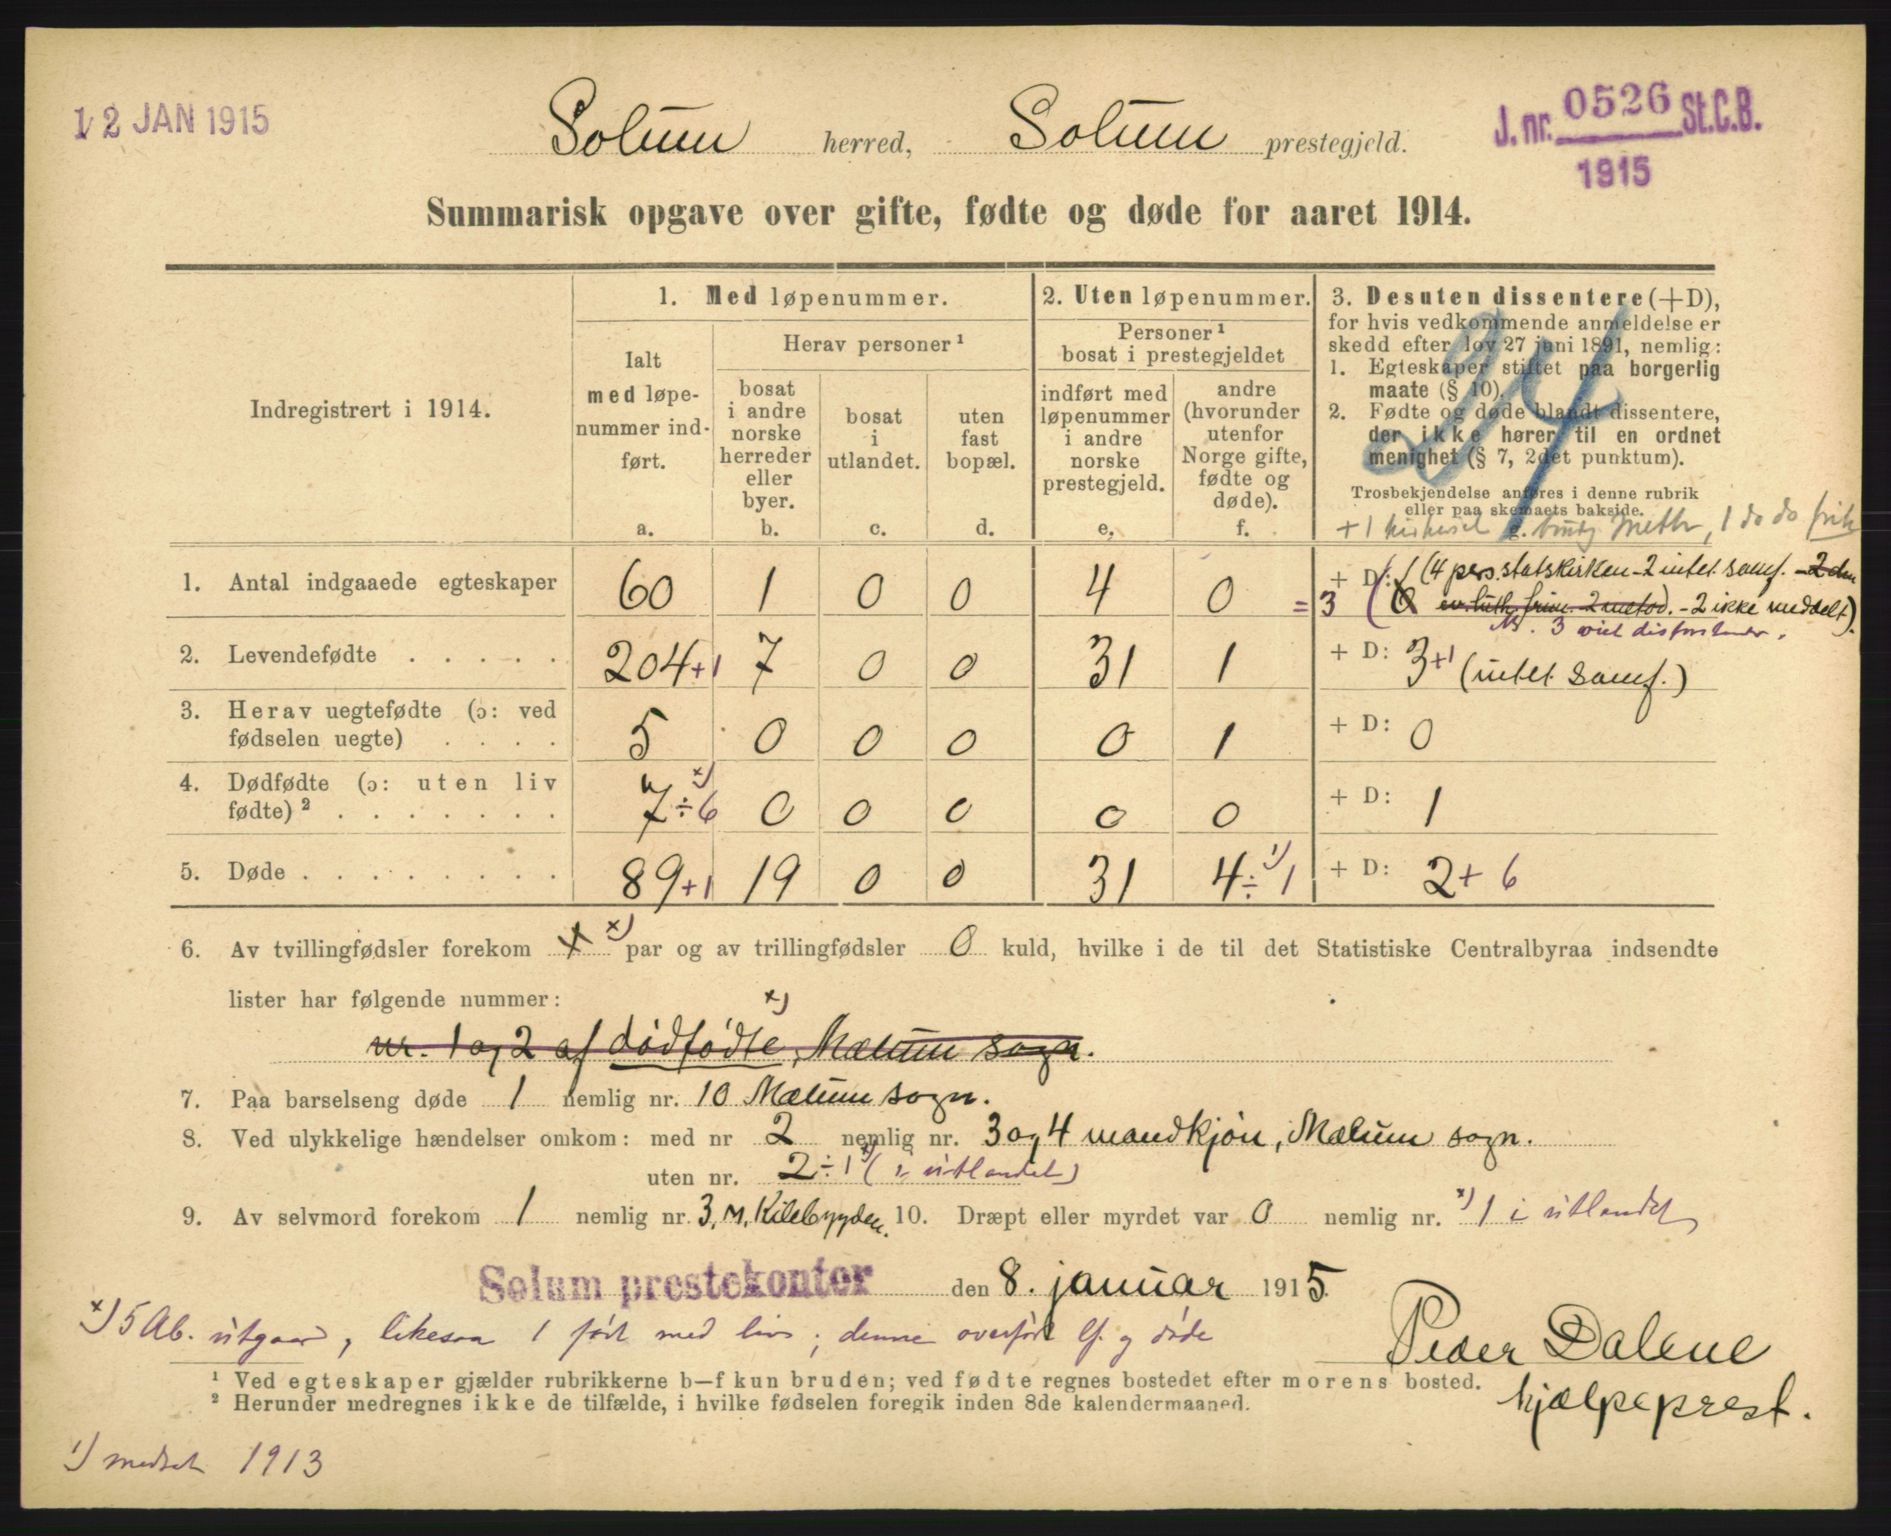 12 JAN 1915
J. nr. 0526 St.C.B.
1915
Solum herred, Solum prestegjeld.
Summarisk opgave over gifte, fødte og døde for aaret 1914.
Indregistrert i 1914.
1. Med løpenummer.
Ialt
med løpe-
nummer ind-
ført.
a.
Herav personer ¹
bosat
i andre
norske
herreder
eller
byer.
b.
bosat
i
utlandet.
c.
uten
fast
bopæl.
d.
2. Uten løpenummer.
Personer ¹
bosat i prestegjeldet
indført med
løpenummer
i andre
norske
prestegjeld.
e.
andre
(hvorunder
utenfor
Norge gifte,
fødte og
døde).
f.
3. Desuten dissentere (+D),
for hvis vedkommende anmeldelse er
skedd efter lov 27 juni 1891, nemlig:
1. Egteskaper stiftet paa borgerlig
maate (§ 10).
2. Fødte og døde blandt dissentere,
der ikke hører til en ordnet
menighet (§ 7, 2det punktum).
Trosbekjendelse anføres i denne rubrik
eller paa skemaets bakside.
g.
24
1. Antal indgaaede egteskaper 60 1 0 0 4 0 = 3 + D: (4 pers. statskirken - 2 intet samf. - 2 den
ev. luth. frim. 2 metod. - 2 ikke meddelt).
2. Levendefødte 204+1 7 0 0 31 1 + D: 3+1 (intet samf.)
3. Herav uegtefødte (ɔ: ved
fødselen uegte) 5 0 0 0 0 1 + D: 0
4. Dødfødte (ɔ: uten liv
fødte) ² 7÷6 x) 0 0 0 0 0 + D: 1
5. Døde 89+1 19 0 0 31 4÷1 ¹) + D: 2+6
6. Av tvillingfødsler forekom x) par og av trillingfødsler 0 kuld, hvilke i de til det Statistiske Centralbyraa indsendte
lister har følgende nummer:
nr. 1 og 2 af dødfødte x), Mælum sogn.
7. Paa barselseng døde 1 nemlig nr. 10 Mælum sogn.
8. Ved ulykkelige hændelser omkom: med nr 2 nemlig nr. 3 og 4 mandkjøn, Mælum sogn.
uten nr. 2÷1 (i utlandet)
9. Av selvmord forekom 1 nemlig nr. 3, M, Kilebygden. 10. Dræpt eller myrdet var 0 nemlig nr. x) 1 i utlandet
Solum prestekontor den 8. januar 1915.
x) 5 Ab. utgaar, likesaa 1 født med liv; denne overført lf. og døde
Peder Dalene
hjælpeprest.
¹ Ved egteskaper gjælder rubrikkerne b—f kun bruden; ved fødte regnes bostedet efter morens bosted.
² Herunder medregnes ikke de tilfælde, i hvilke fødselen foregik inden 8de kalendermaaned.
¹) medtat 1913